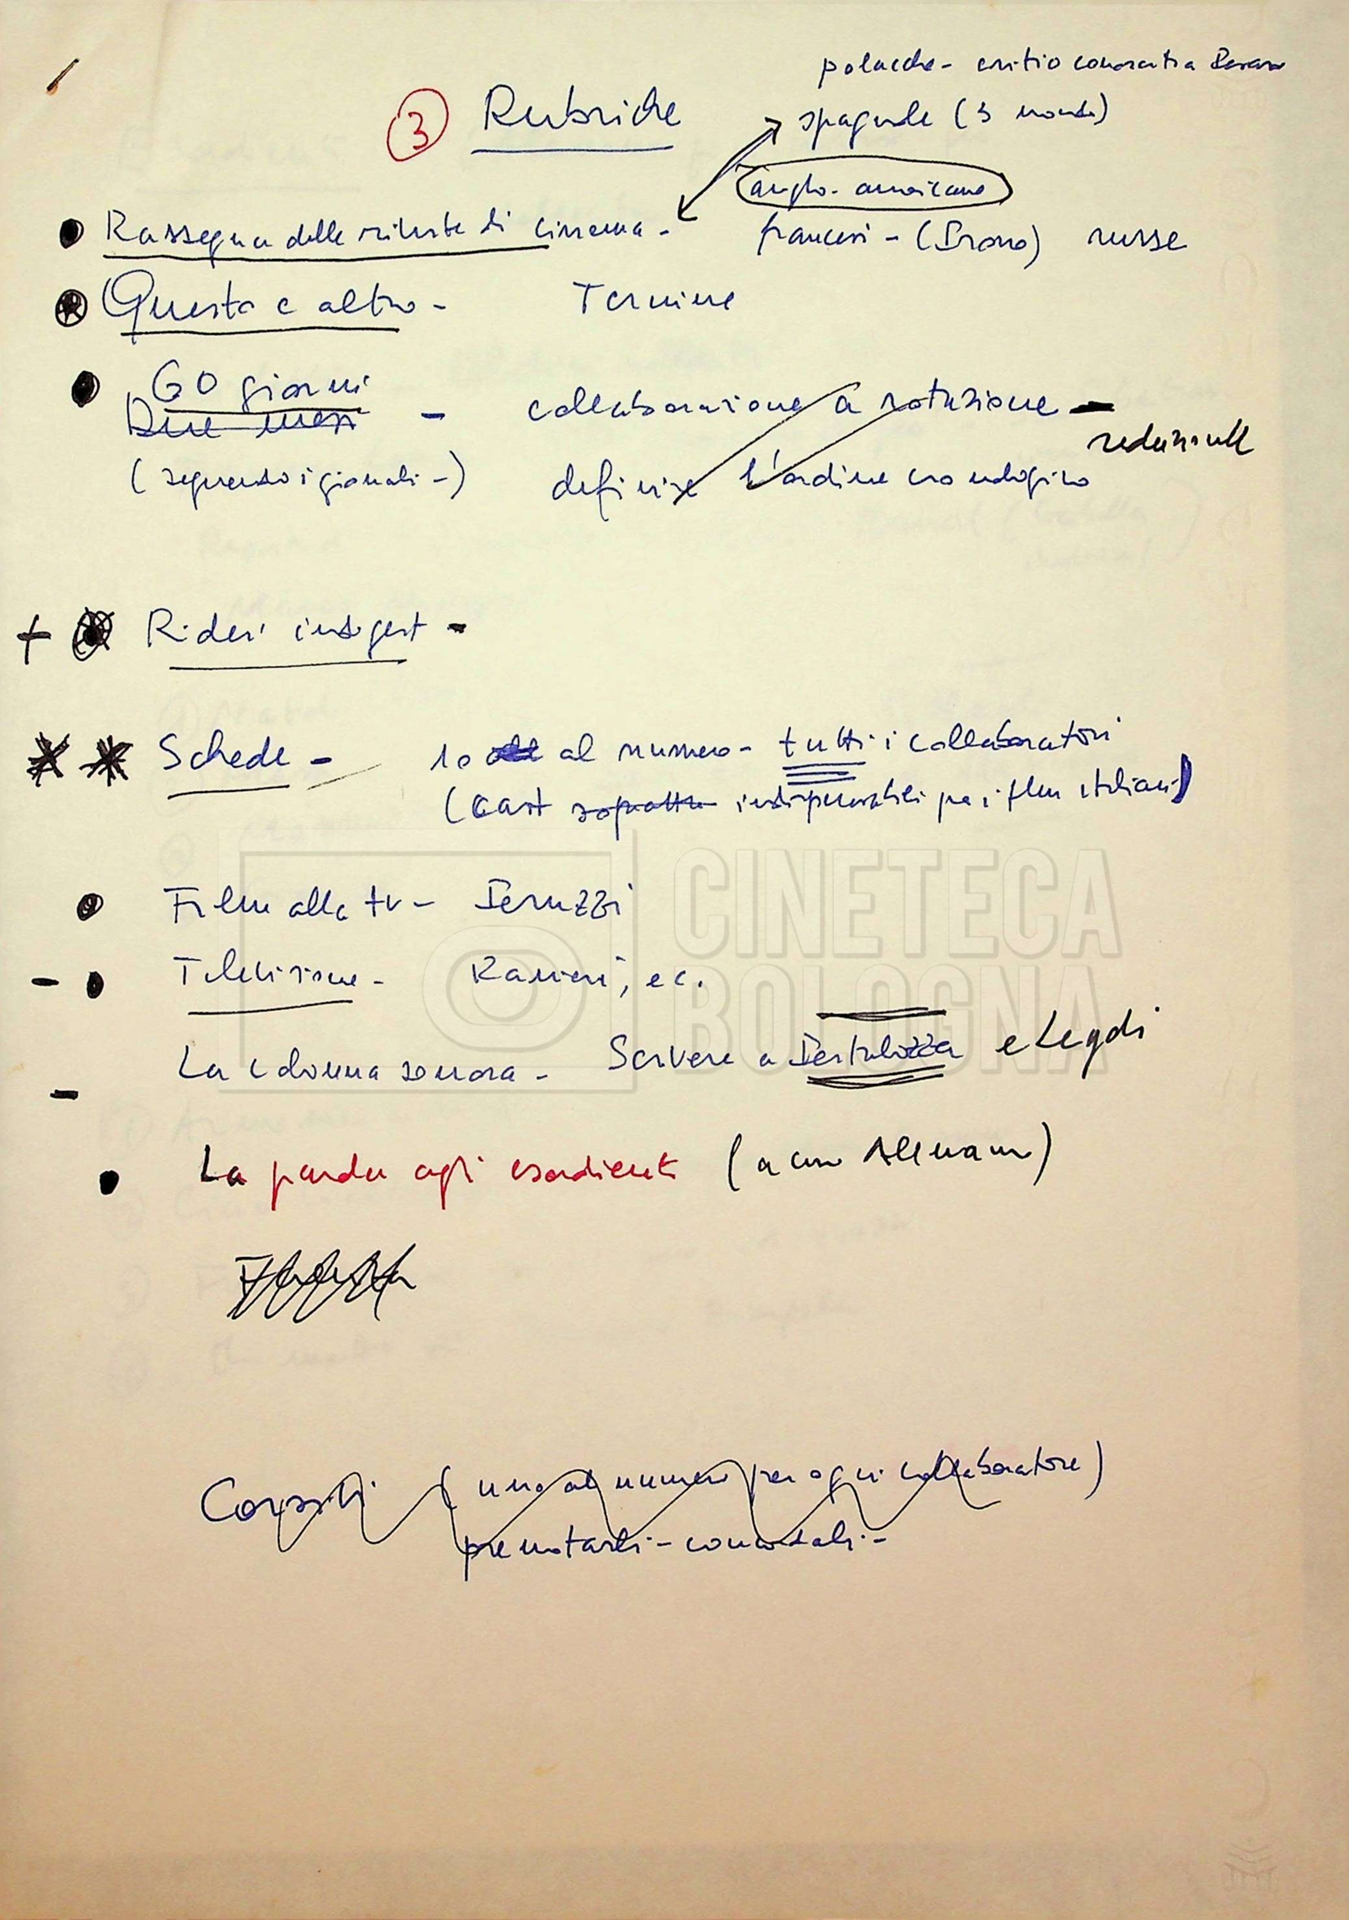 polacche -
③ Rubriche
spagnole (3 mondo)
anglo-americane
Rassegna delle riviste di cinema - francesi - (Bruno) russe
Questo e altro - Termine
60 giorni
Due mesi - collaborazione a rotazione -
redazionale
(seguendo i giornali -) definire l'ordine cronologico
+ Rideri indigest -
Schede - 10 al numero - tutti i collaboratori
(cast soprattu indispensabili per i film italiani)
CINETECA
BOLOGNA
Film alla tv -
Televisione - Ranieri, ec.
La colonna sonora - Scrivere a e
La parola agli esordienti (a cura
(uno al numero per ogni collaboratore)
prenotarli - concordali -